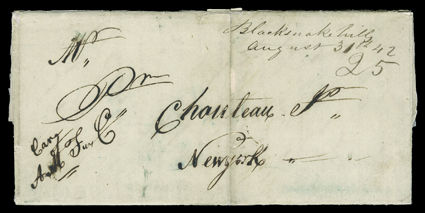 Blacksnake hills
August 31st 42
25
Mr
Pr
Chouteau Jr
Care
of
Am Fur Co
New york